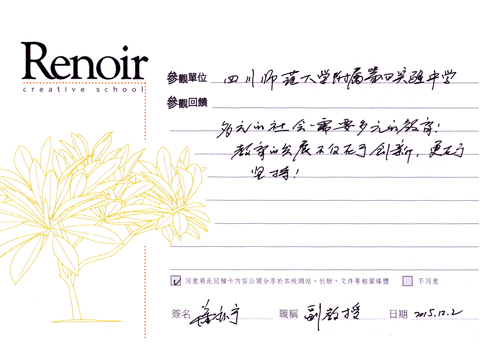 Renoir
creative school
參觀單位 四川师范大学附属第口实验中学
參觀回饋
多元的社会需要多元的教育!
教育的发展不仅在于创新,更在于
坚持!
同意將此回饋卡內容公開分享於本校網站、刊物、文件等相關媒體 不同意
簽名 職稱 副教授 日期 2015.12.2